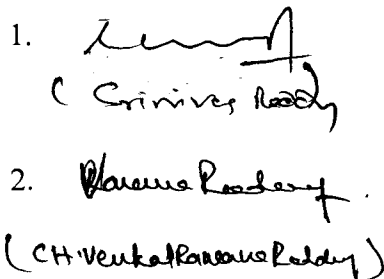 1.
( Srinivas Reddy
2. Ramana Reddy
( CH. Venkat Ramana Reddy )